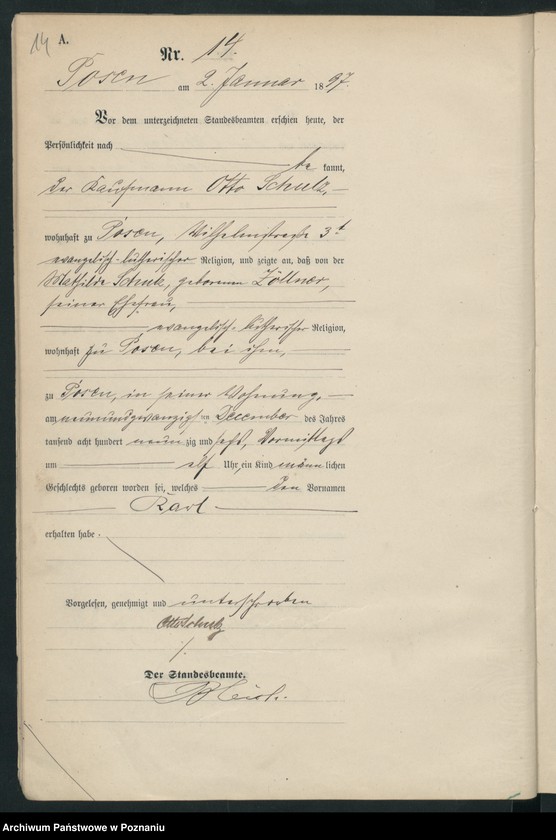 14 A.
Nr. 14.
Posen am 2. Januar 1897.
Vor dem unterzeichneten Standesbeamten erschien heute, der
Persönlichkeit nach
be kannt,
der Kaufmann Otto Schulz,
wohnhaft zu Posen, Wilhelmstraße 3
evangelisch-lutherischer Religion, und zeigte an, daß von der
Mathilde Schulz, geborenen Zöllner,
seiner Ehefrau,
evangelisch-lutherischer Religion,
wohnhaft zu Posen, bei ihm,
zu Posen, in seiner Wohnung,
am neunundzwanzigsten December des Jahres
tausend acht hundert neunzig und sechs, Vormittags
um elf Uhr, ein Kind männlichen
Geschlechts geboren worden sei, welches den Vornamen
Karl
erhalten habe.
Vorgelesen, genehmigt und unterschrieben
Otto Schulz
Der Standesbeamte.
Archiwum Państwowe w Poznaniu